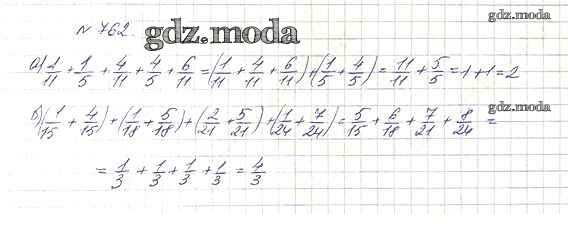 № 762. gdz.moda gdz.moda
а) 1/11 + 1/5 + 4/11 + 4/5 + 6/11 = (1/11 + 4/11 + 6/11) + (1/5 + 4/5) = 11/11 + 5/5 = 1 + 1 = 2
gdz.moda
б) (1/15 + 4/15) + (1/18 + 5/18) + (2/21 + 5/21) + (1/24 + 7/24) = 5/15 + 6/18 + 7/21 + 8/24 =
= 1/3 + 1/3 + 1/3 + 1/3 = 4/3
gdz.moda